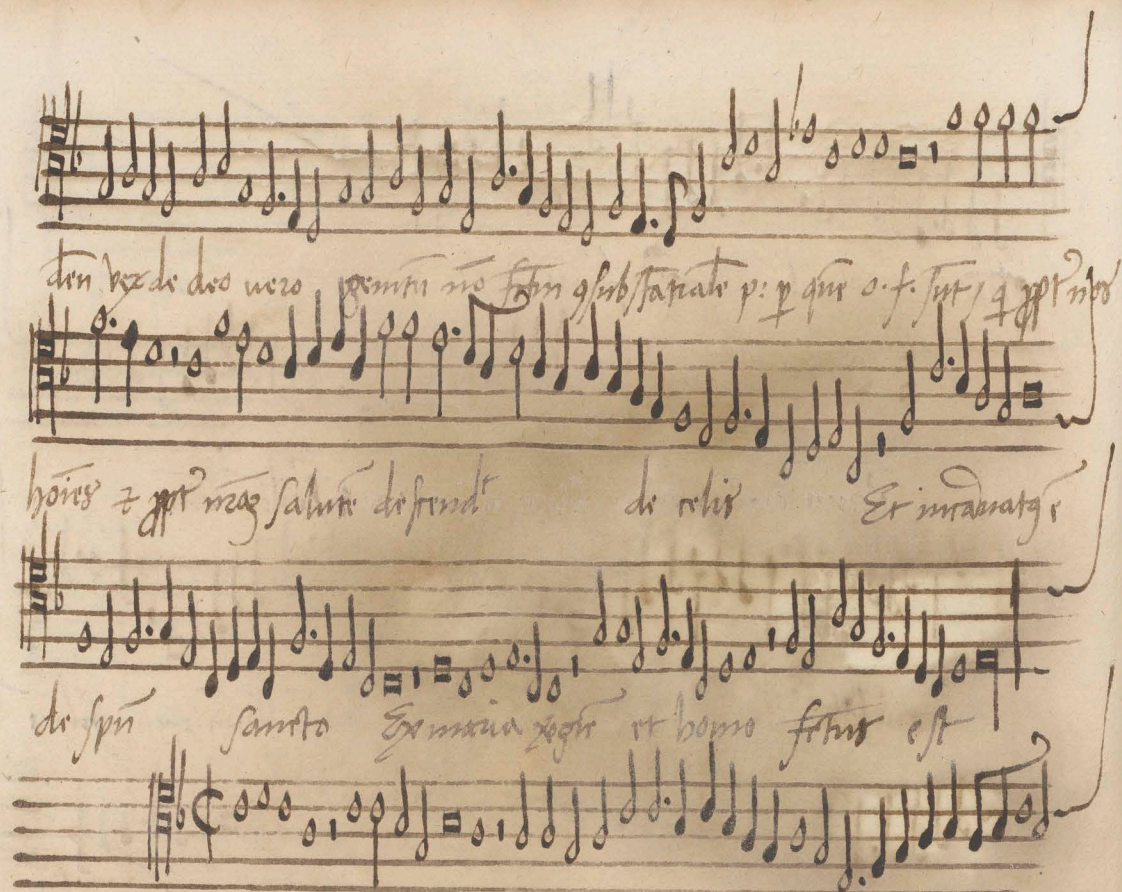 deū verū de deo vero genitū nō fctm 9substātialē p: p quē o. f. sūt / q ppt nos
hoīes & ppt nrāz salutē descendt de celis Et incarnat9 ē
de spū sancto Ex maria v͡gīe et homo fctus est